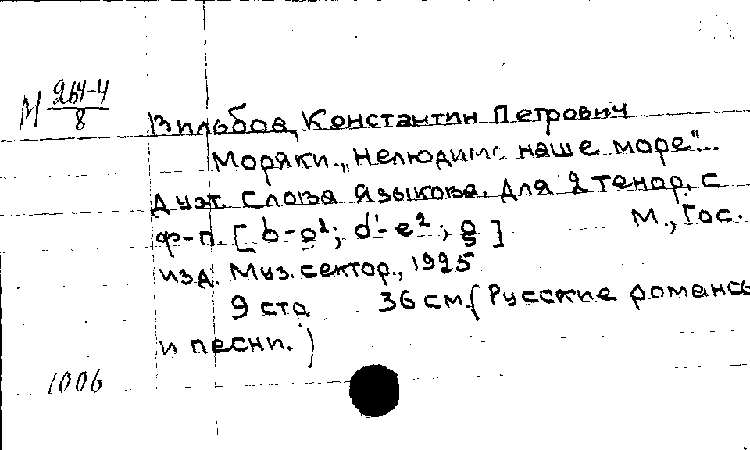 М 264-4/8
Вильбоа, Константин Петрович
Моряки. „Нелюдимо наше море"...
Дуэт. Слова Языкова. Для 2 тенор. с
ф-п. [b-g²; d'-e²; g] М., Гос.
изд. Муз. сектор., 1925
9 стр 36 см. (Русские романсы
и песни.)
1006